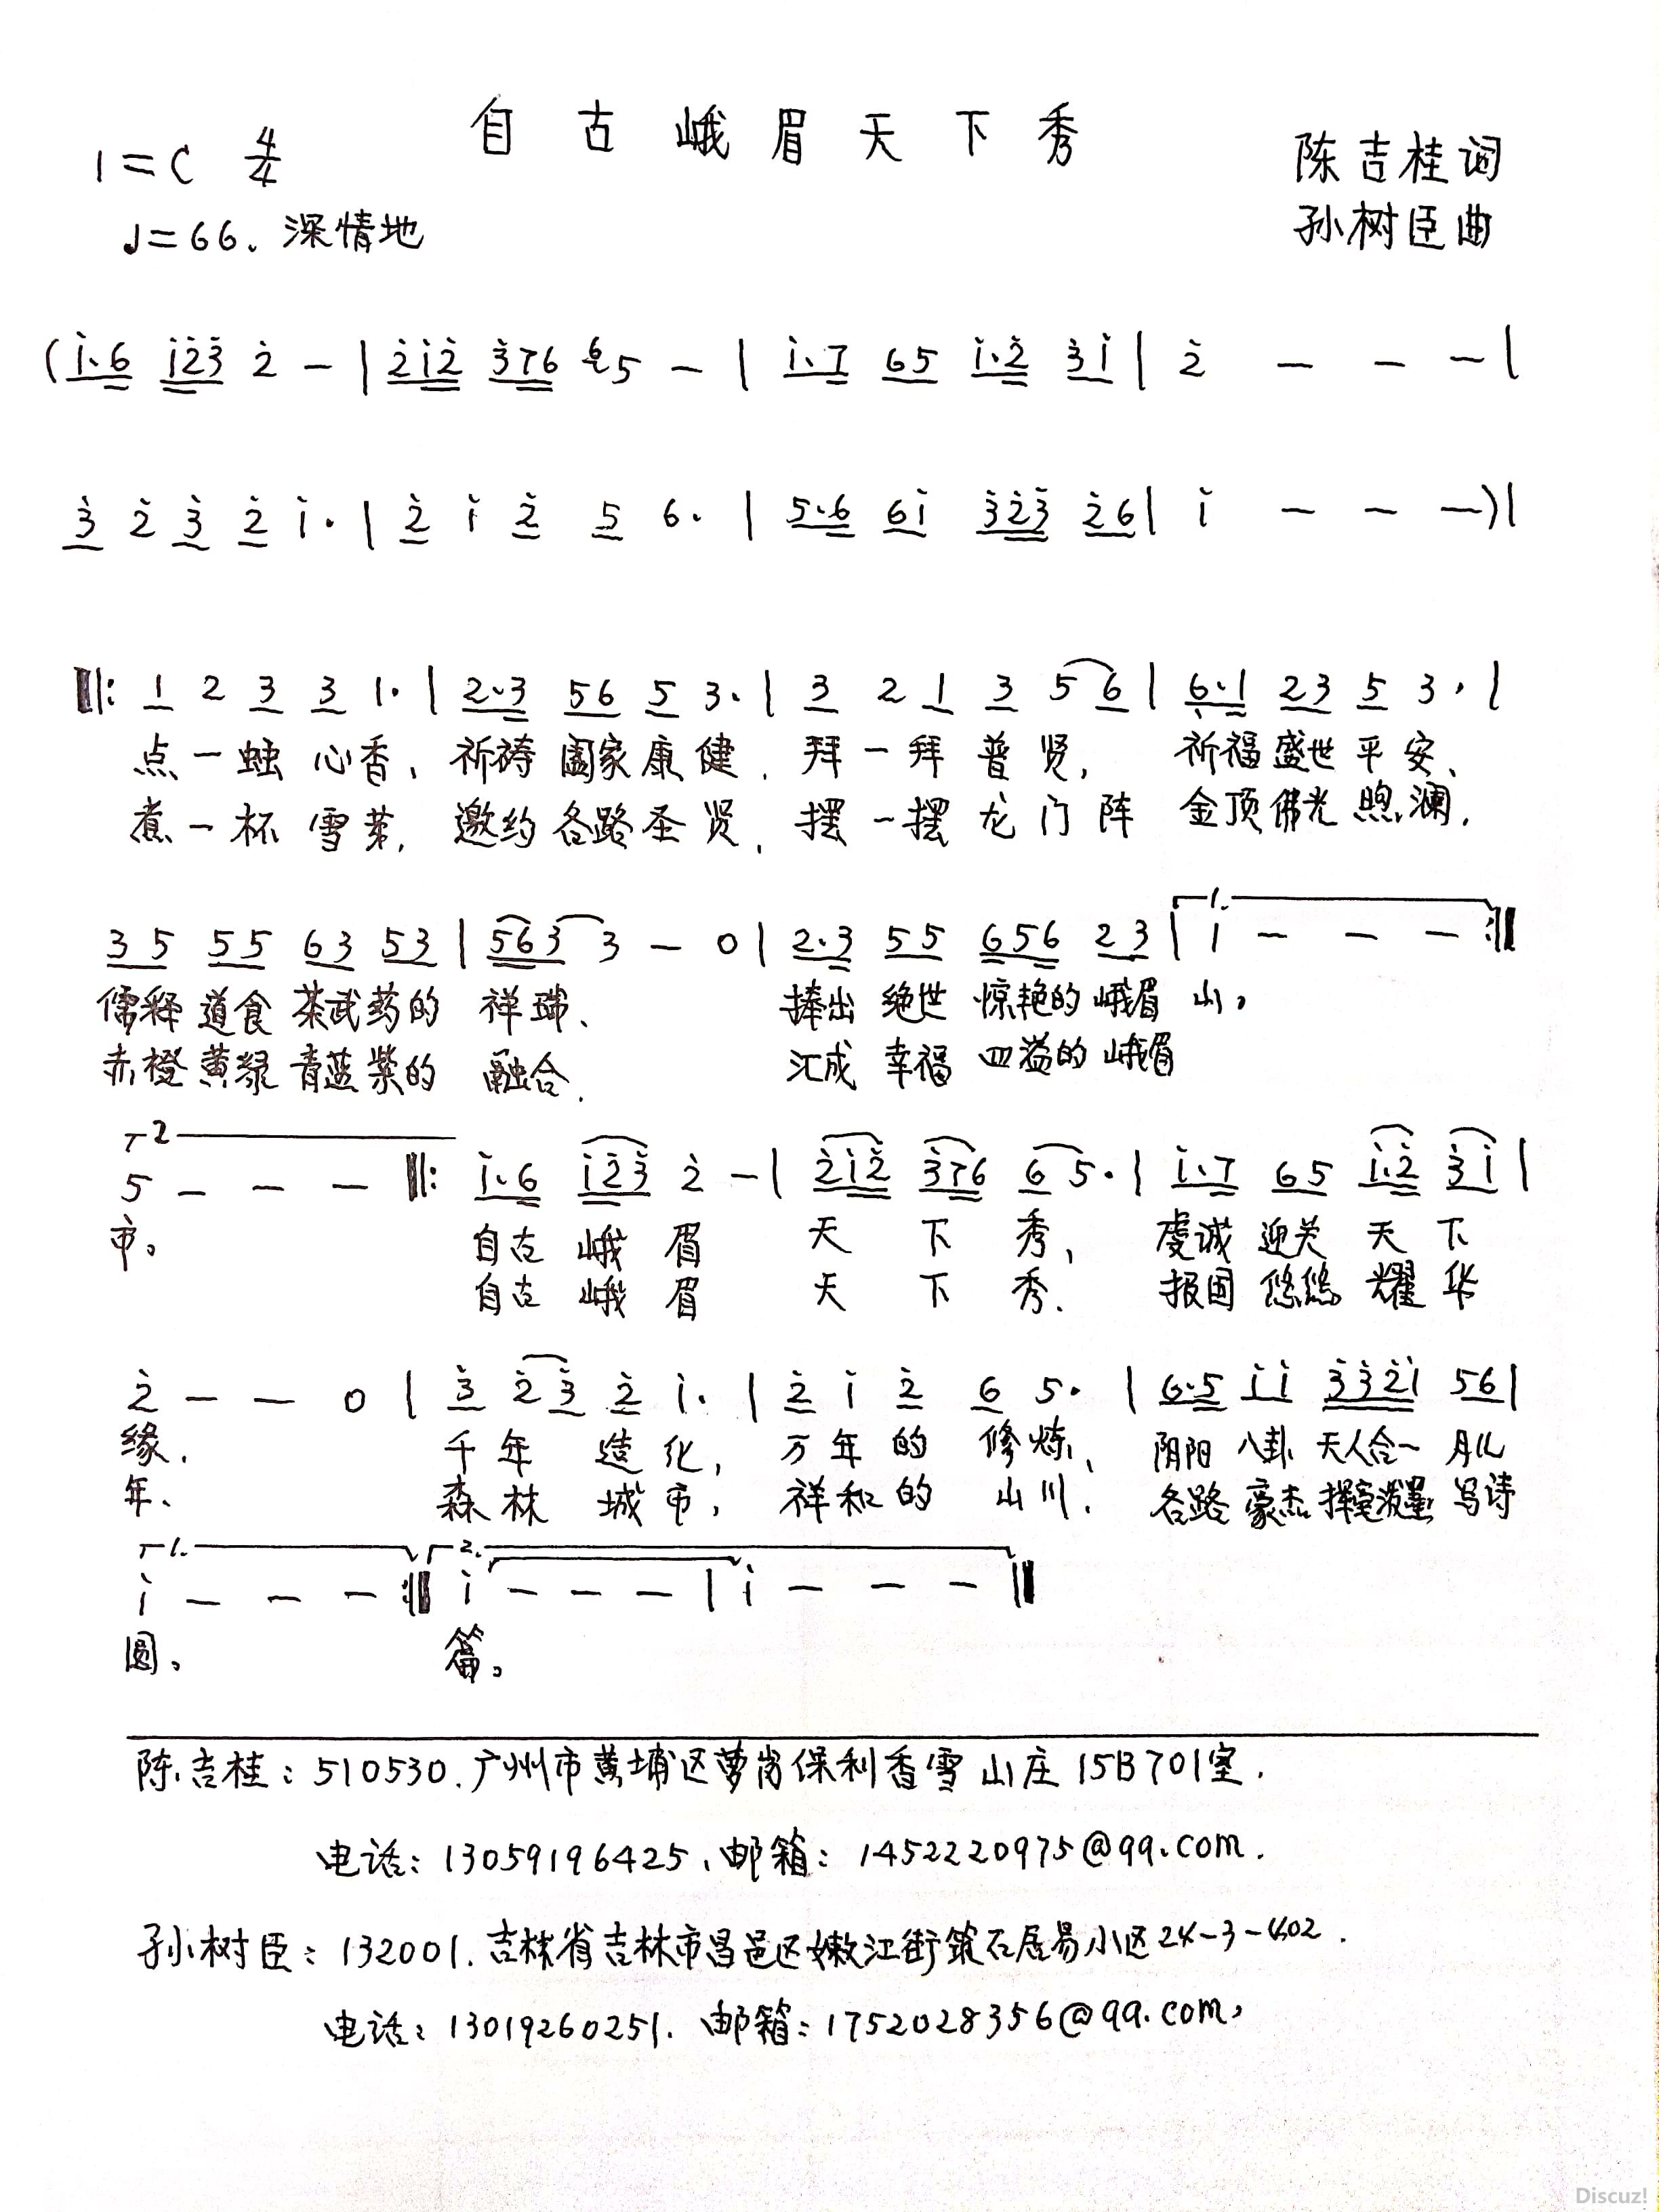 自古峨眉天下秀
1=C 4/4
陈吉桂词
♩=66、深情地
孙树臣曲
(i·6 i2̇3̇ 2̇ - | 2̇i2̇ 3̇76 ⁶5 - | i·7 65 i·2̇ 3̇i | 2̇ - - - |
3̇ 2̇ 3̇ 2̇ i· | 2̇ i 2̇ 5 6· | 5·6 6i 3̇2̇3̇ 2̇6 | i - - -) |
‖: 1 2 3 3 1· | 2·3 56 5 3· | 3 2 1 3 5 6 | 6̣·1 23 5 3· |
点一蛐心香、祈祷阖家康健、拜一拜普贤, 祈福盛世平安、
煮一杯雪芽, 邀约各路圣贤、摆一摆龙门阵 金顶佛光煦澜,
35 55 63 53 | 563 3 - 0 | 2·3 55 656 23 | 1. 1 - - - :‖
儒释道食茶武药的祥瑞、捧出绝世惊艳的峨眉山。
赤橙黄绿青蓝紫的融合、汇成幸福四溢的峨眉
2 5 - - - ‖: i·6 i2̇3̇ 2̇ - | 2̇i2̇ 3̇76 6 5· | i·7 65 i·2̇ 3̇i |
市。自古峨眉天下秀, 虔诚迎关天下
自古峨眉天下秀、报国悠悠耀华
2̇ - - 0 | 3̇ 2̇3̇ 2̇ i· | 2̇ i 2̇ 6 5· | 6·5 ii 3̇3̇2̇i 56 |
缘、千年造化, 万年的修炼、阴阳八卦天人合一月儿
年、森林城市, 祥和的山川、各路豪杰挥毫泼墨写诗
1. i - - - :‖ 2. i - - - | i - - - ‖
圆。篇。
陈吉桂: 510530. 广州市黄埔区萝岗保利香雪山庄15B701室.
电话: 13059196425、邮箱: 1452220975@qq.com.
孙树臣: 132001. 吉林省吉林市昌邑区嫩江街筑石居易小区24-3-402.
电话: 13019260251. 邮箱: 1752028356@qq.com,
Discuz!